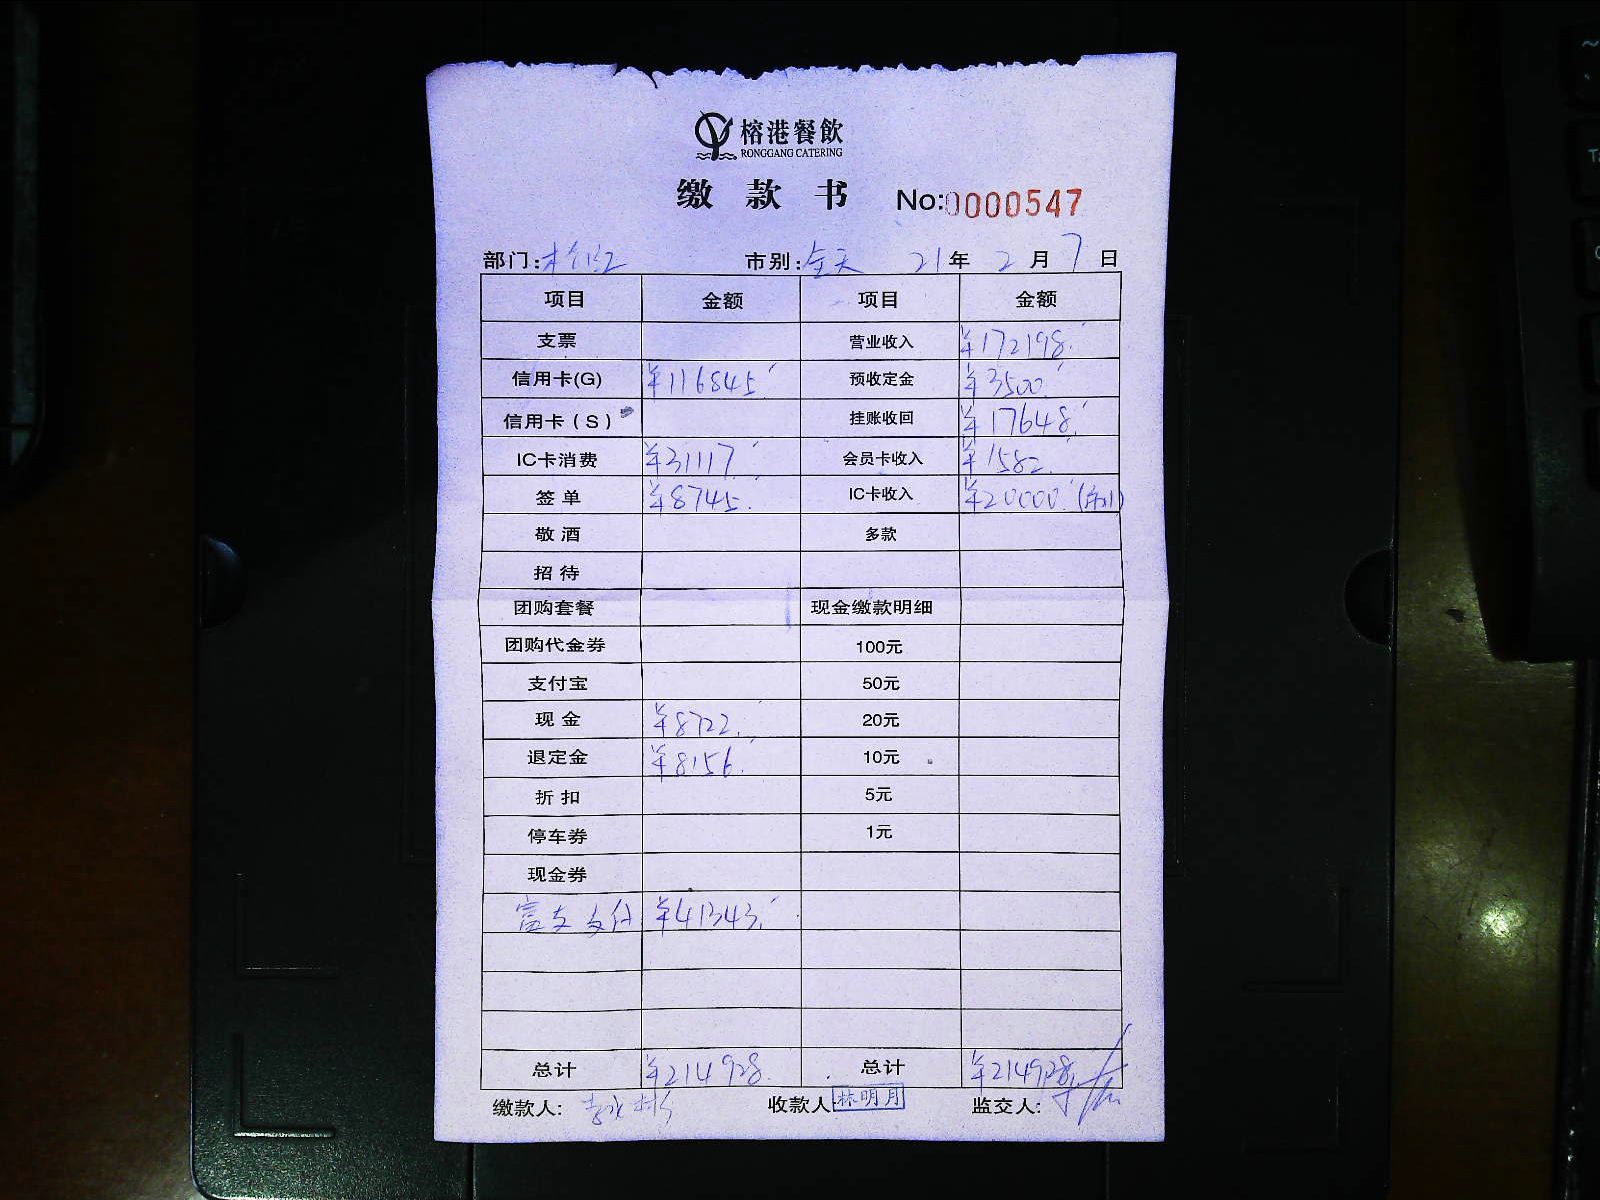 榕港餐飲
RONGGANG CATERING
缴款书 No:0000547
部门: 市别:全天 21年2月7日
项目 金额 项目 金额
支票 营业收入 ¥172198.
信用卡(G) ¥116845. 预收定金 ¥3500.
信用卡(S) 挂账收回 ¥17648.
IC卡消费 ¥31117. 会员卡收入 ¥1582.
签单 ¥8745. IC卡收入 ¥20000.
敬酒 多款
招待
团购套餐 现金缴款明细
团购代金券 100元
支付宝 50元
现金 ¥8722. 20元
退定金 ¥8156. 10元
折扣 5元
停车券 1元
现金券
支付 ¥41343.
总计 ¥214928. 总计 ¥214928.
缴款人: 收款人 林明月 监交人: